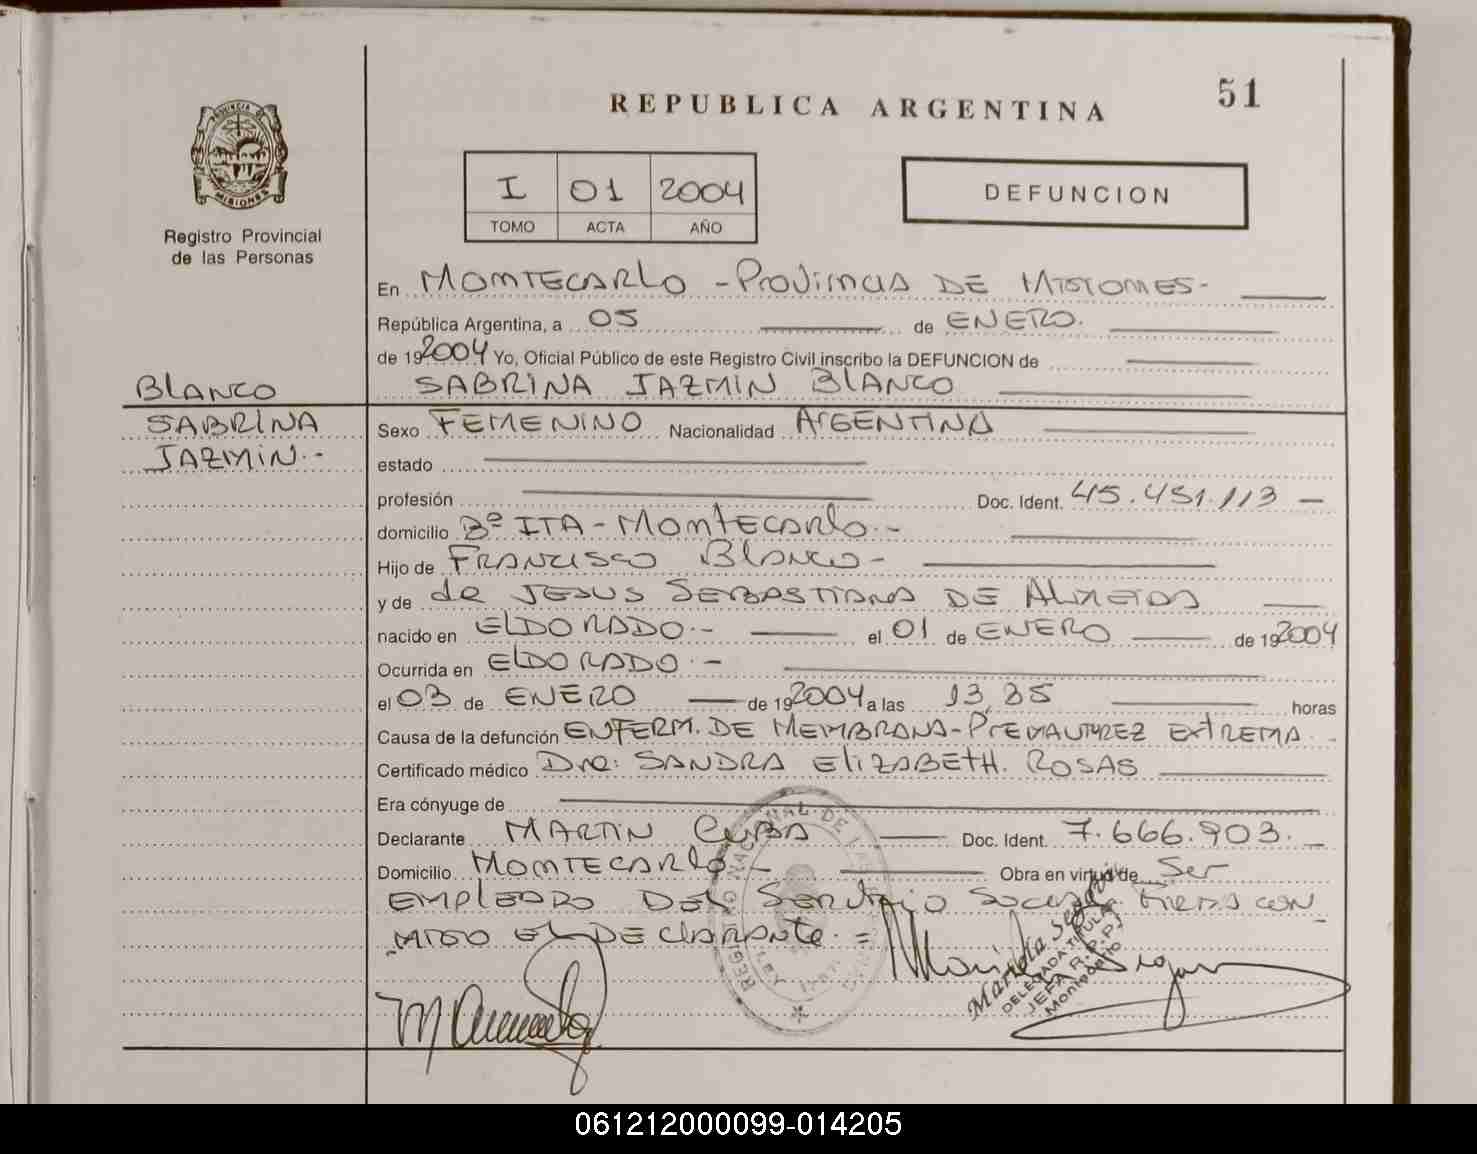 51
REPUBLICA ARGENTINA
PROVINCIA DE
MISIONES
Registro Provincial
de las Personas
I 01 2004
TOMO ACTA AÑO
DEFUNCION
En MONTECARLO - PROVINCIA DE MISIONES-
República Argentina, a 05 de ENERO.
de 192004 Yo, Oficial Público de este Registro Civil inscribo la DEFUNCION de
BLANCO
SABRINA JAZMIN BLANCO
SABRINA
JAZMIN.-
Sexo FEMENINO Nacionalidad ARGENTINA
estado
profesión Doc. Ident. 45.451.113 -
domicilio Bº ITA - MONTECARLO.-
Hijo de FRANCISCO BLANCO-
y de de JESUS SEBASTIANA DE ALMEIDA
nacido en ELDORADO.- el 01 de ENERO de 192004
Ocurrida en ELDORADO.-
el 03 de ENERO de 192004 a las 13,35 horas
Causa de la defunción ENFERM. DE MEMBRANA-PREMATUREZ EXTREMA.
Certificado médico Dra: SANDRA ELIZABETH. ROSAS
Era cónyuge de
Declarante MARTIN CUBA Doc. Ident. 7.666.903.-
Domicilio MONTECARLO - Obra en virtud de Ser
EMPLEADO DEL SERVICIO SOCIAL FIRMA CON
MIGO EL DECLARANTE.=
REGISTRO NACIONAL DE LAS
Mariela Segovia
DELEGADA TITULAR
JEFA R.P.P.
Montecarlo
061212000099-014205